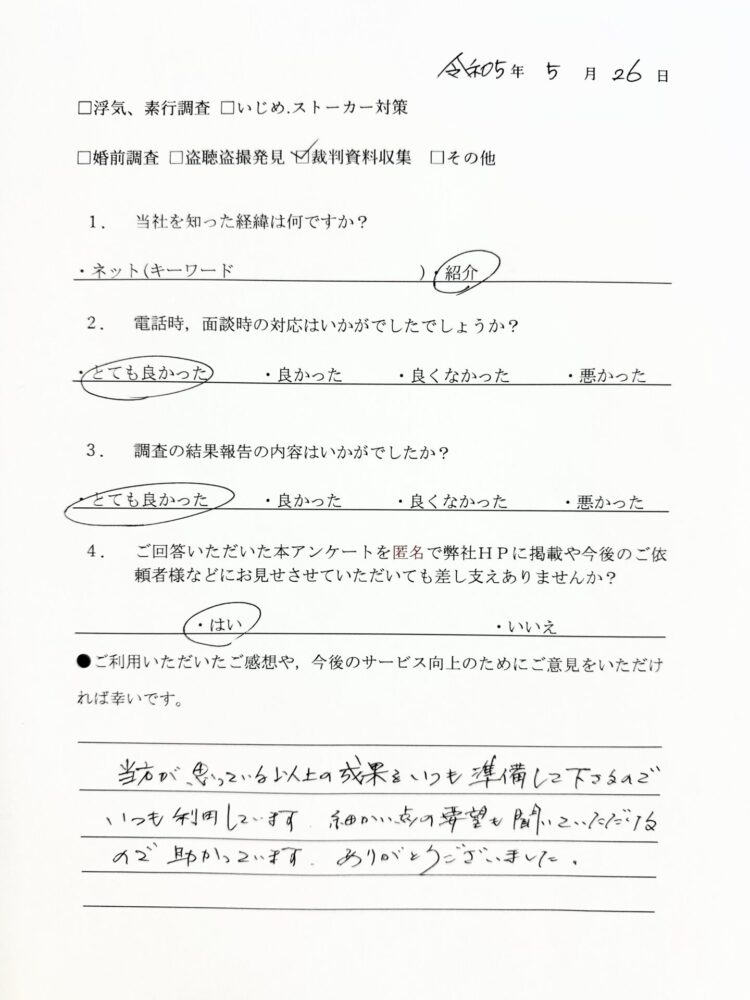 令和5年 5 月 26 日
□浮気、素行調査 □いじめ.ストーカー対策
□婚前調査 □盗聴盗撮発見 ☑裁判資料収集 □その他
1. 当社を知った経緯は何ですか?
・ネット(キーワード )・紹介
2. 電話時,面談時の対応はいかがでしたでしょうか?
・とても良かった ・良かった ・良くなかった ・悪かった
3. 調査の結果報告の内容はいかがでしたか?
・とても良かった ・良かった ・良くなかった ・悪かった
4. ご回答いただいた本アンケートを匿名で弊社HPに掲載や今後のご依
頼者様などにお見せさせていただいても差し支えありませんか?
・はい ・いいえ
●ご利用いただいたご感想や,今後のサービス向上のためにご意見をいただけ
れば幸いです。
当方が思っている以上の成果をいつも準備して下さるので
いつも利用しています. 細かい点の要望も聞いていただける
ので助かっています. ありがとうございました.